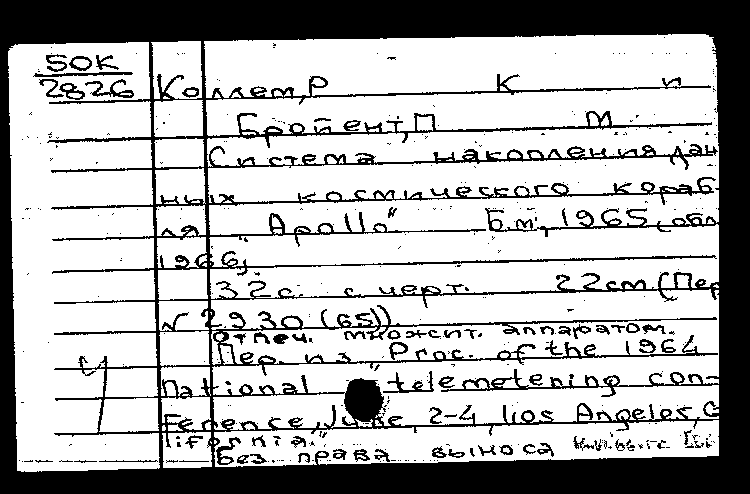 50К
2826 Коллем,Р К и
Бройент,П м
Система накопления дан
ных космического кораб-
ля „Apollo" Б.м., 1965, обл
1966,
32с. с черт. 22см (Пер
N 2930 (65))
Отпеч. множит. аппаратом.
Пер. из „Proc. of the 1964
National telemetening con-
ference, June, 2-4, los Angeles, C
lifornia."
Без права выноса